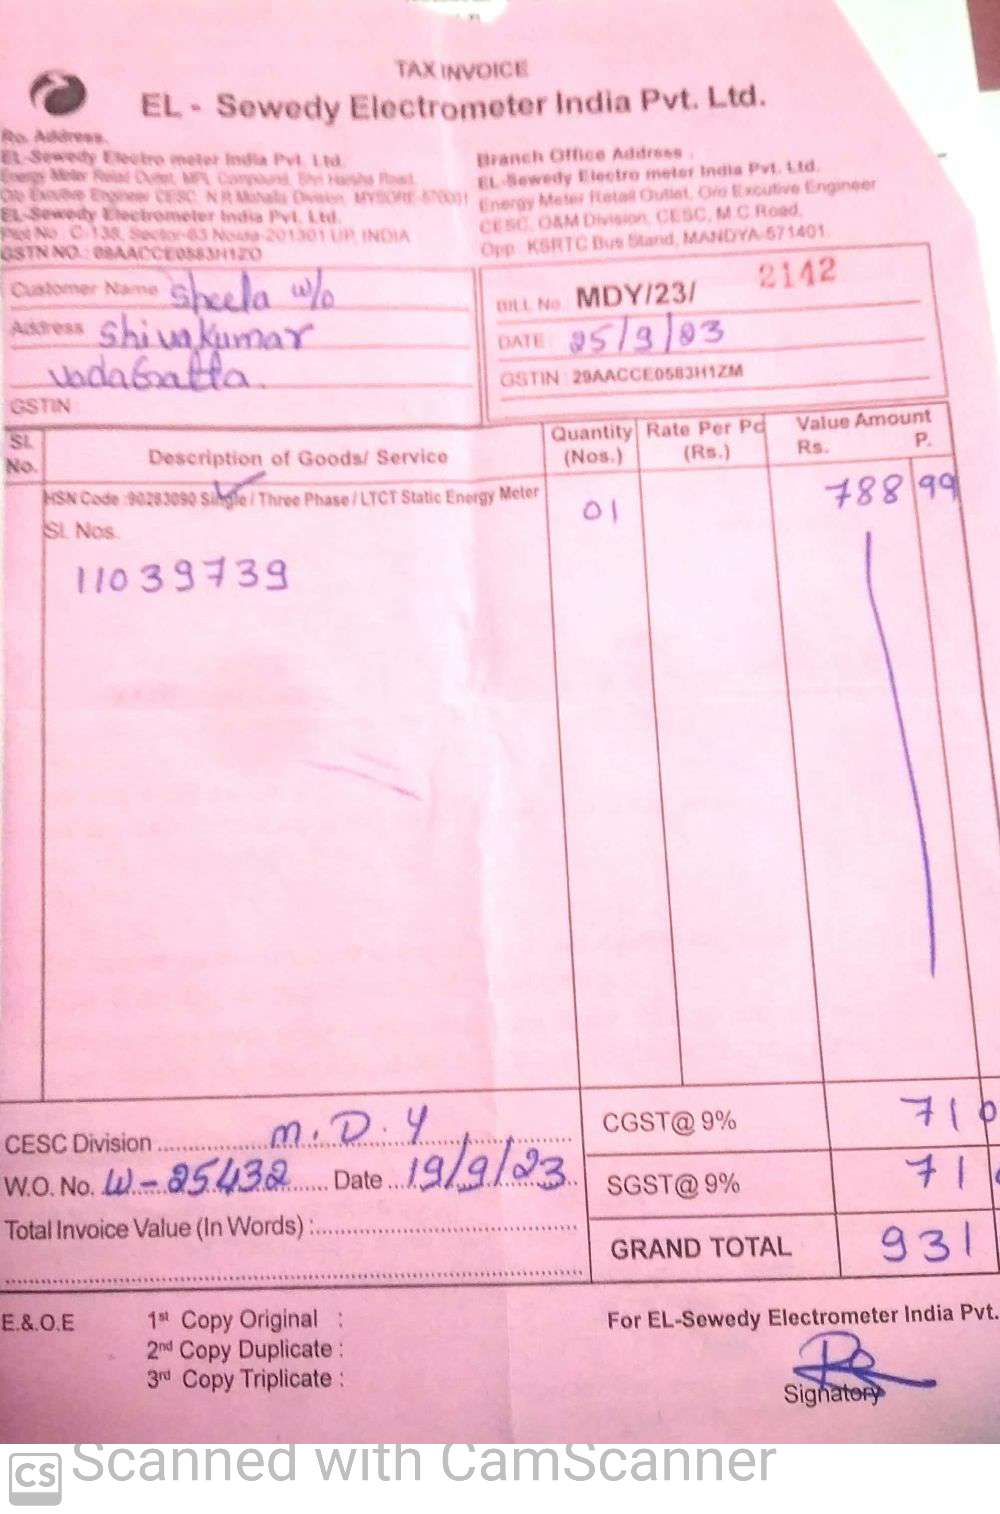 TAX INVOICE
EL - Sewedy Electrometer India Pvt. Ltd.
Ro. Address.
EL-Sewedy Electro meter India Pvt. Ltd.
Energy Meter Retail Outlet, MPL Compound, Shri Harsha Road,
O/o Exicutive Engineer CESC, N.R Mohalla Division, MYSORE-570001
EL-Sewedy Electrometer India Pvt. Ltd.
Plot No. C-138, Sector-63 Noida-201301 UP, INDIA
GSTN NO. : 09AACCE0583H1ZO
Branch Office Address .
EL-Sewedy Electro meter India Pvt. Ltd.
Energy Meter Retail Outlet, O/o Excutive Engineer
CESC, O&M Division, CESC, M.C Road,
Opp. KSRTC Bus Stand, MANDYA-571401.
Customer Name Sheela w/o
Address Shivakumar
GSTIN :
BILL No. MDY/23/ 2142
DATE : 25/9/23
GSTIN : 29AACCE0583H1ZM
Sl. No. Description of Goods/ Service Quantity (Nos.) Rate Per Pc (Rs.) Value Amount Rs. P.
HSN Code :90283090 Single / Three Phase / LTCT Static Energy Meter 01 788 99
Sl. Nos.
11039739
CESC Division M.D.Y
W.O. No. W-25432 Date 19/9/23
Total Invoice Value (In Words) :
CGST@ 9% 71 0
SGST@ 9% 71
GRAND TOTAL 931
E.&.O.E
1st Copy Original :
2nd Copy Duplicate :
3rd Copy Triplicate :
For EL-Sewedy Electrometer India Pvt.
Signatory
CS Scanned with CamScanner